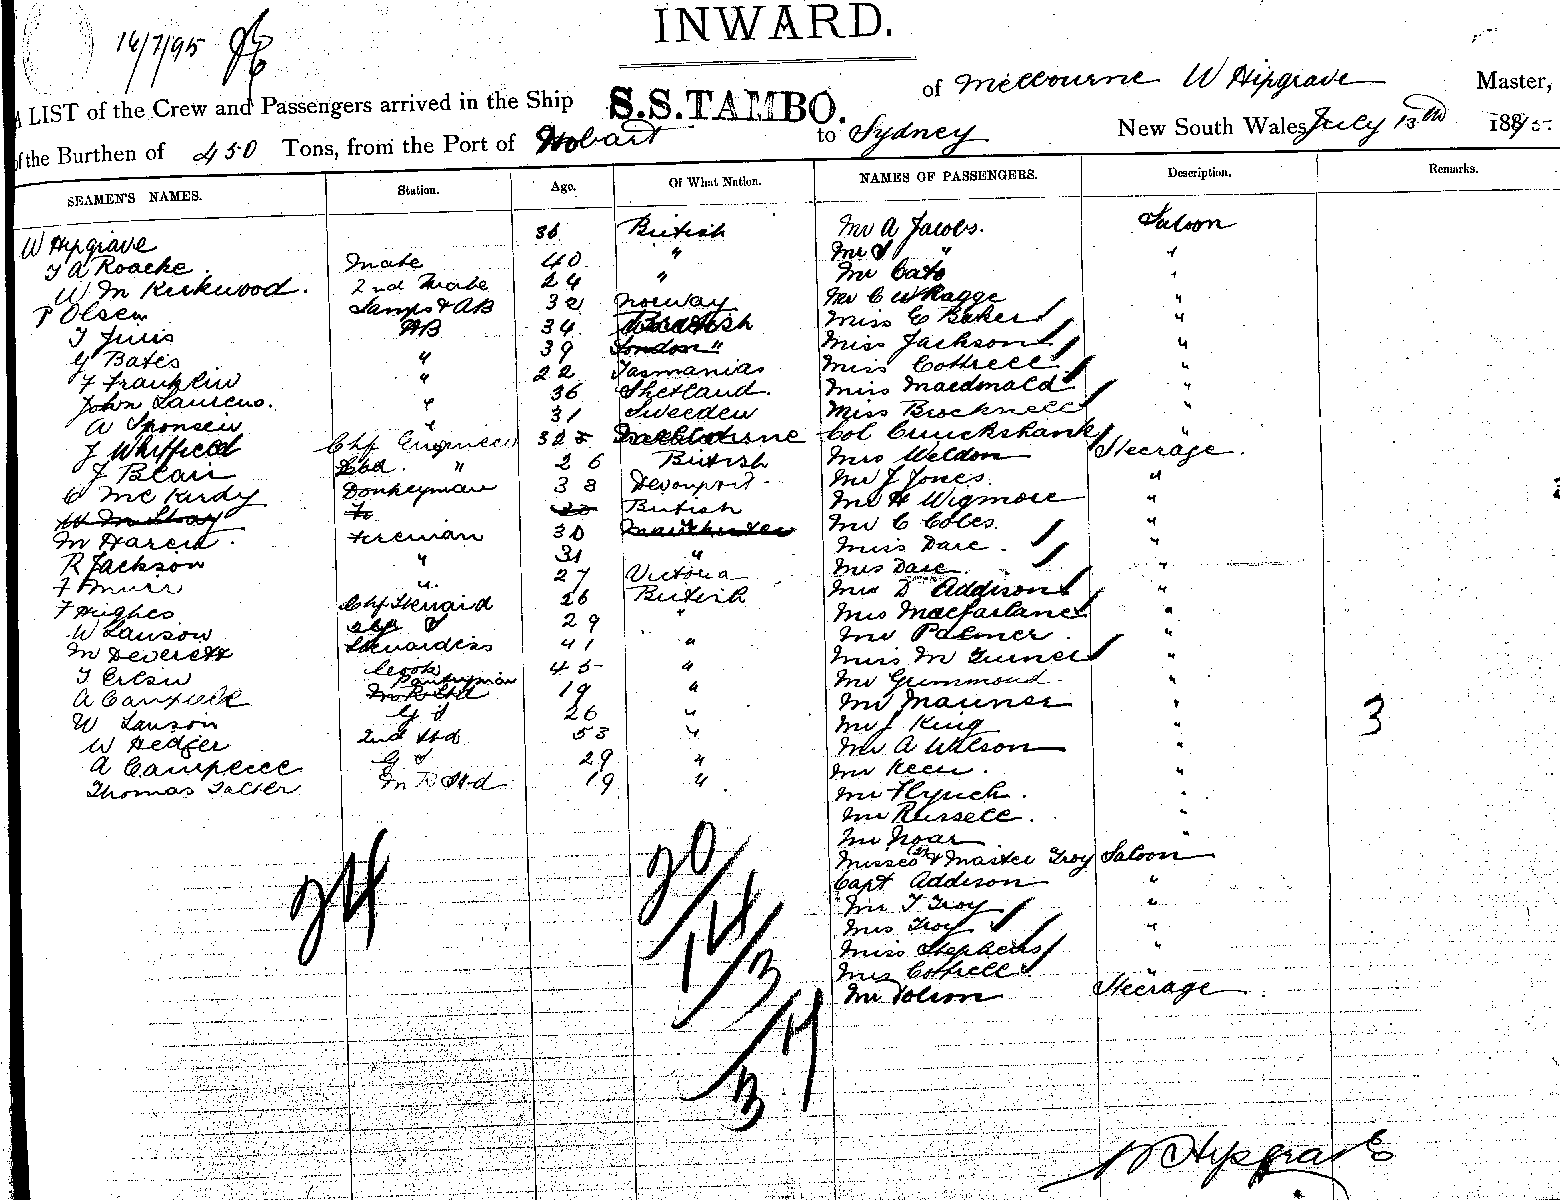 INWARD.
16/7/95
A LIST of the Crew and Passengers arrived in the Ship S.S.TAMBO. of Melbourne W Hipgrave Master,
of the Burthen of 450 Tons, from the Port of Hobart to Sydney New South Wales July 13th 1895
SEAMEN'S NAMES. Station. Age. Of What Nation. NAMES OF PASSENGERS. Description. Remarks.
W Hipgrave 36 British Mr A Jacobs. Saloon
F A Roacke Mate 40 " Mr S " "
W M Kirkwood. 2nd Mate 24 " Mr Cato "
P Olsen Lamps & AB 32 Norway Mr C W Ragge "
AB 34 British Miss E Baker "
G Bates " 39 London " Miss Jackson "
F Franklin " 22 Tasmania Miss Cottrell "
John Laurens. " 36 Shetland Miss Macdonald "
A Sponsen " 31 Sweeden Miss Brocknell "
J Whitfield Chf Engineer 32 Melbourne Col Cruickshank "
J Blair 2nd. " 26 British Mrs Weldon Steerage.
C McKardy Donkeyman 38 Devonport Mr J Jones. "
W McShay British Mr H Wigmore "
M Haren. Fireman 30 Manchester Mr C Coles. "
R Jackson " 31 " Miss Dare. "
F Muir " 27 Victoria Mrs Dare. "
F Hughes Chf Steward 26 British Mrs D Addison "
W Lawson 29 " Mrs Macfarlane "
M Deverett Stewardess 41 " Mr Palmer. "
Cook 45 " Miss M Turner "
A Campbell Pantryman 19 " Mr Grummond. "
W Lawson G S 26 " Mr Mauner "
W Hedger 2nd Std 53 " Mr J King "
A Campbell G S 29 " Mr A Wilson "
Thomas Salter M R Std 19 " Mr Keen. "
Mr Flynch. "
Mr Russell. "
Mr Noar "
Misses & Master Troy Saloon
Capt Addison "
Mr T Troy "
Mrs Troy "
Miss Stephens "
Mrs Cottrell "
Mr Tolson Steerage
3
24
20
14
3
17
3
W Hipgrave